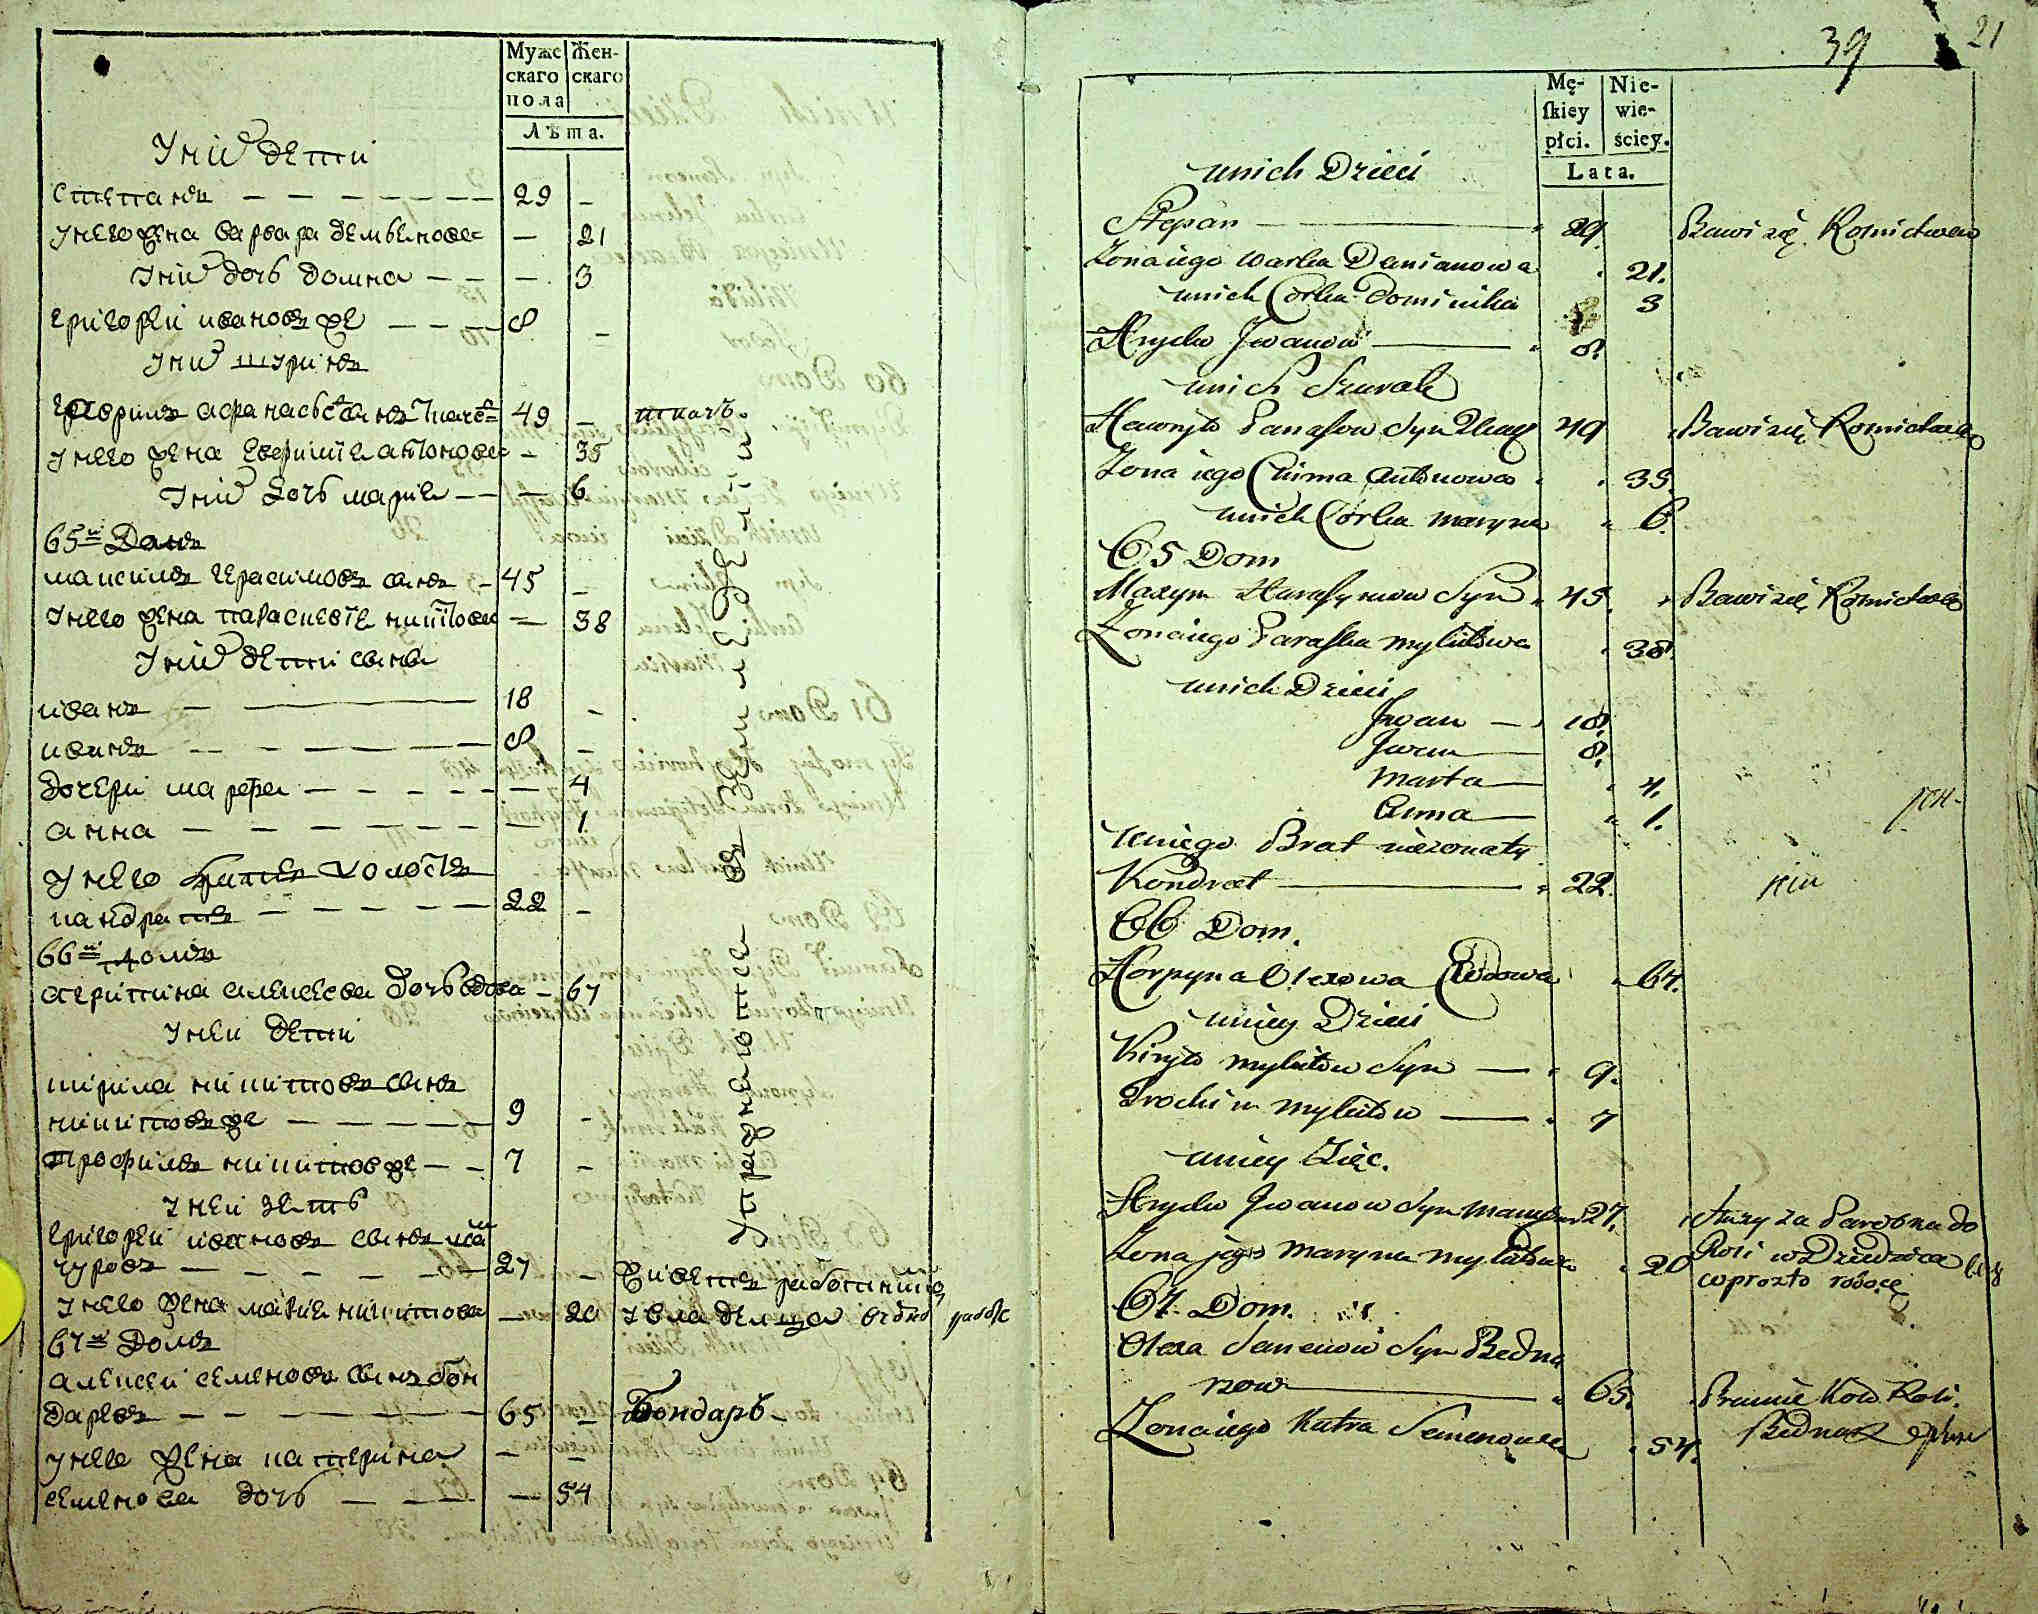 Муже
скаго
пола
Жен-
скаго
Лѣта.
У них дети
степанъ — 29 —
У него жена варвара демьянова — 21
У них дочь домна — 3
григореи ивановъ же — 8 —
У них шуринъ
гаврила афанасьевъ сынъ 49 — ткачь
У него жена антонова — 35
У них дочь мария — 6
65й Домъ
максимъ герасимовъ сынъ — 45 —
У него жена параскевия никитова — 38
У них дети сыны
иванъ — 18 —
иванъ — 8 —
дочери марфа — 4
анна — 1
У него братъ холостъ
кандратъ — 22 —
66й домъ
агрипина алексеева дочь вдова — 67
У неи дети
кирила никитовъ сынъ
никитовъ же — 9 —
трофимъ никитовъ же — 7 —
У неи зять
григореи ивановъ сынъ
чуровъ — 27 — Живетъ работникомъ
У него жена мария никитова — 20 У владельца
67й Домъ
алексеи семеновъ сынъ бон
даревъ — 65 — Бондарь
У него жена катерина — —
семенова дочь — 54
Упражнаютса въ земледелии
39
21
Mę-
ſkiey
płci.
Nie-
wie-
ściey.
Lata.
unich Dzieci
Stepan — 29. Bawi się Rolnictwem
Zona iego Warka Demianowa 21.
unich Corka Dominika 3
Hryćko Jwanow — 8.
unich Szurak
Hawryło Panasow Syn 49 Bawi się Rolnictwem
Zona iego Chima Antonowa 35.
unich Corka Maryna 6.
65 Dom
Maxym Harasymow Syn 45. Bawi się Rolnictwem
Zona iego Paraska Mykitowa 38.
unich Dzieci
Jwan — 18.
Jwan — 8.
Marta — 4.
Anna — 1.
Uniego Brat nieżonaty
Kondrat — 22.
66 Dom.
Horpyna Olexowa Wdowa 67.
uniey Dzieci
Kiryło Mykitow Syn — 9.
Trochim Mykitow — 7
uniey Zięc.
Hryćko Jwanow Syn 27. służy za Parobka do
Zona jego Maryna Mykitowa 20 Roli w Dziedzica
67. Dom.
Olexa Semenow Syn Bedna
row — 65.
Zona iego Katra Semenowa 54. Bednarz